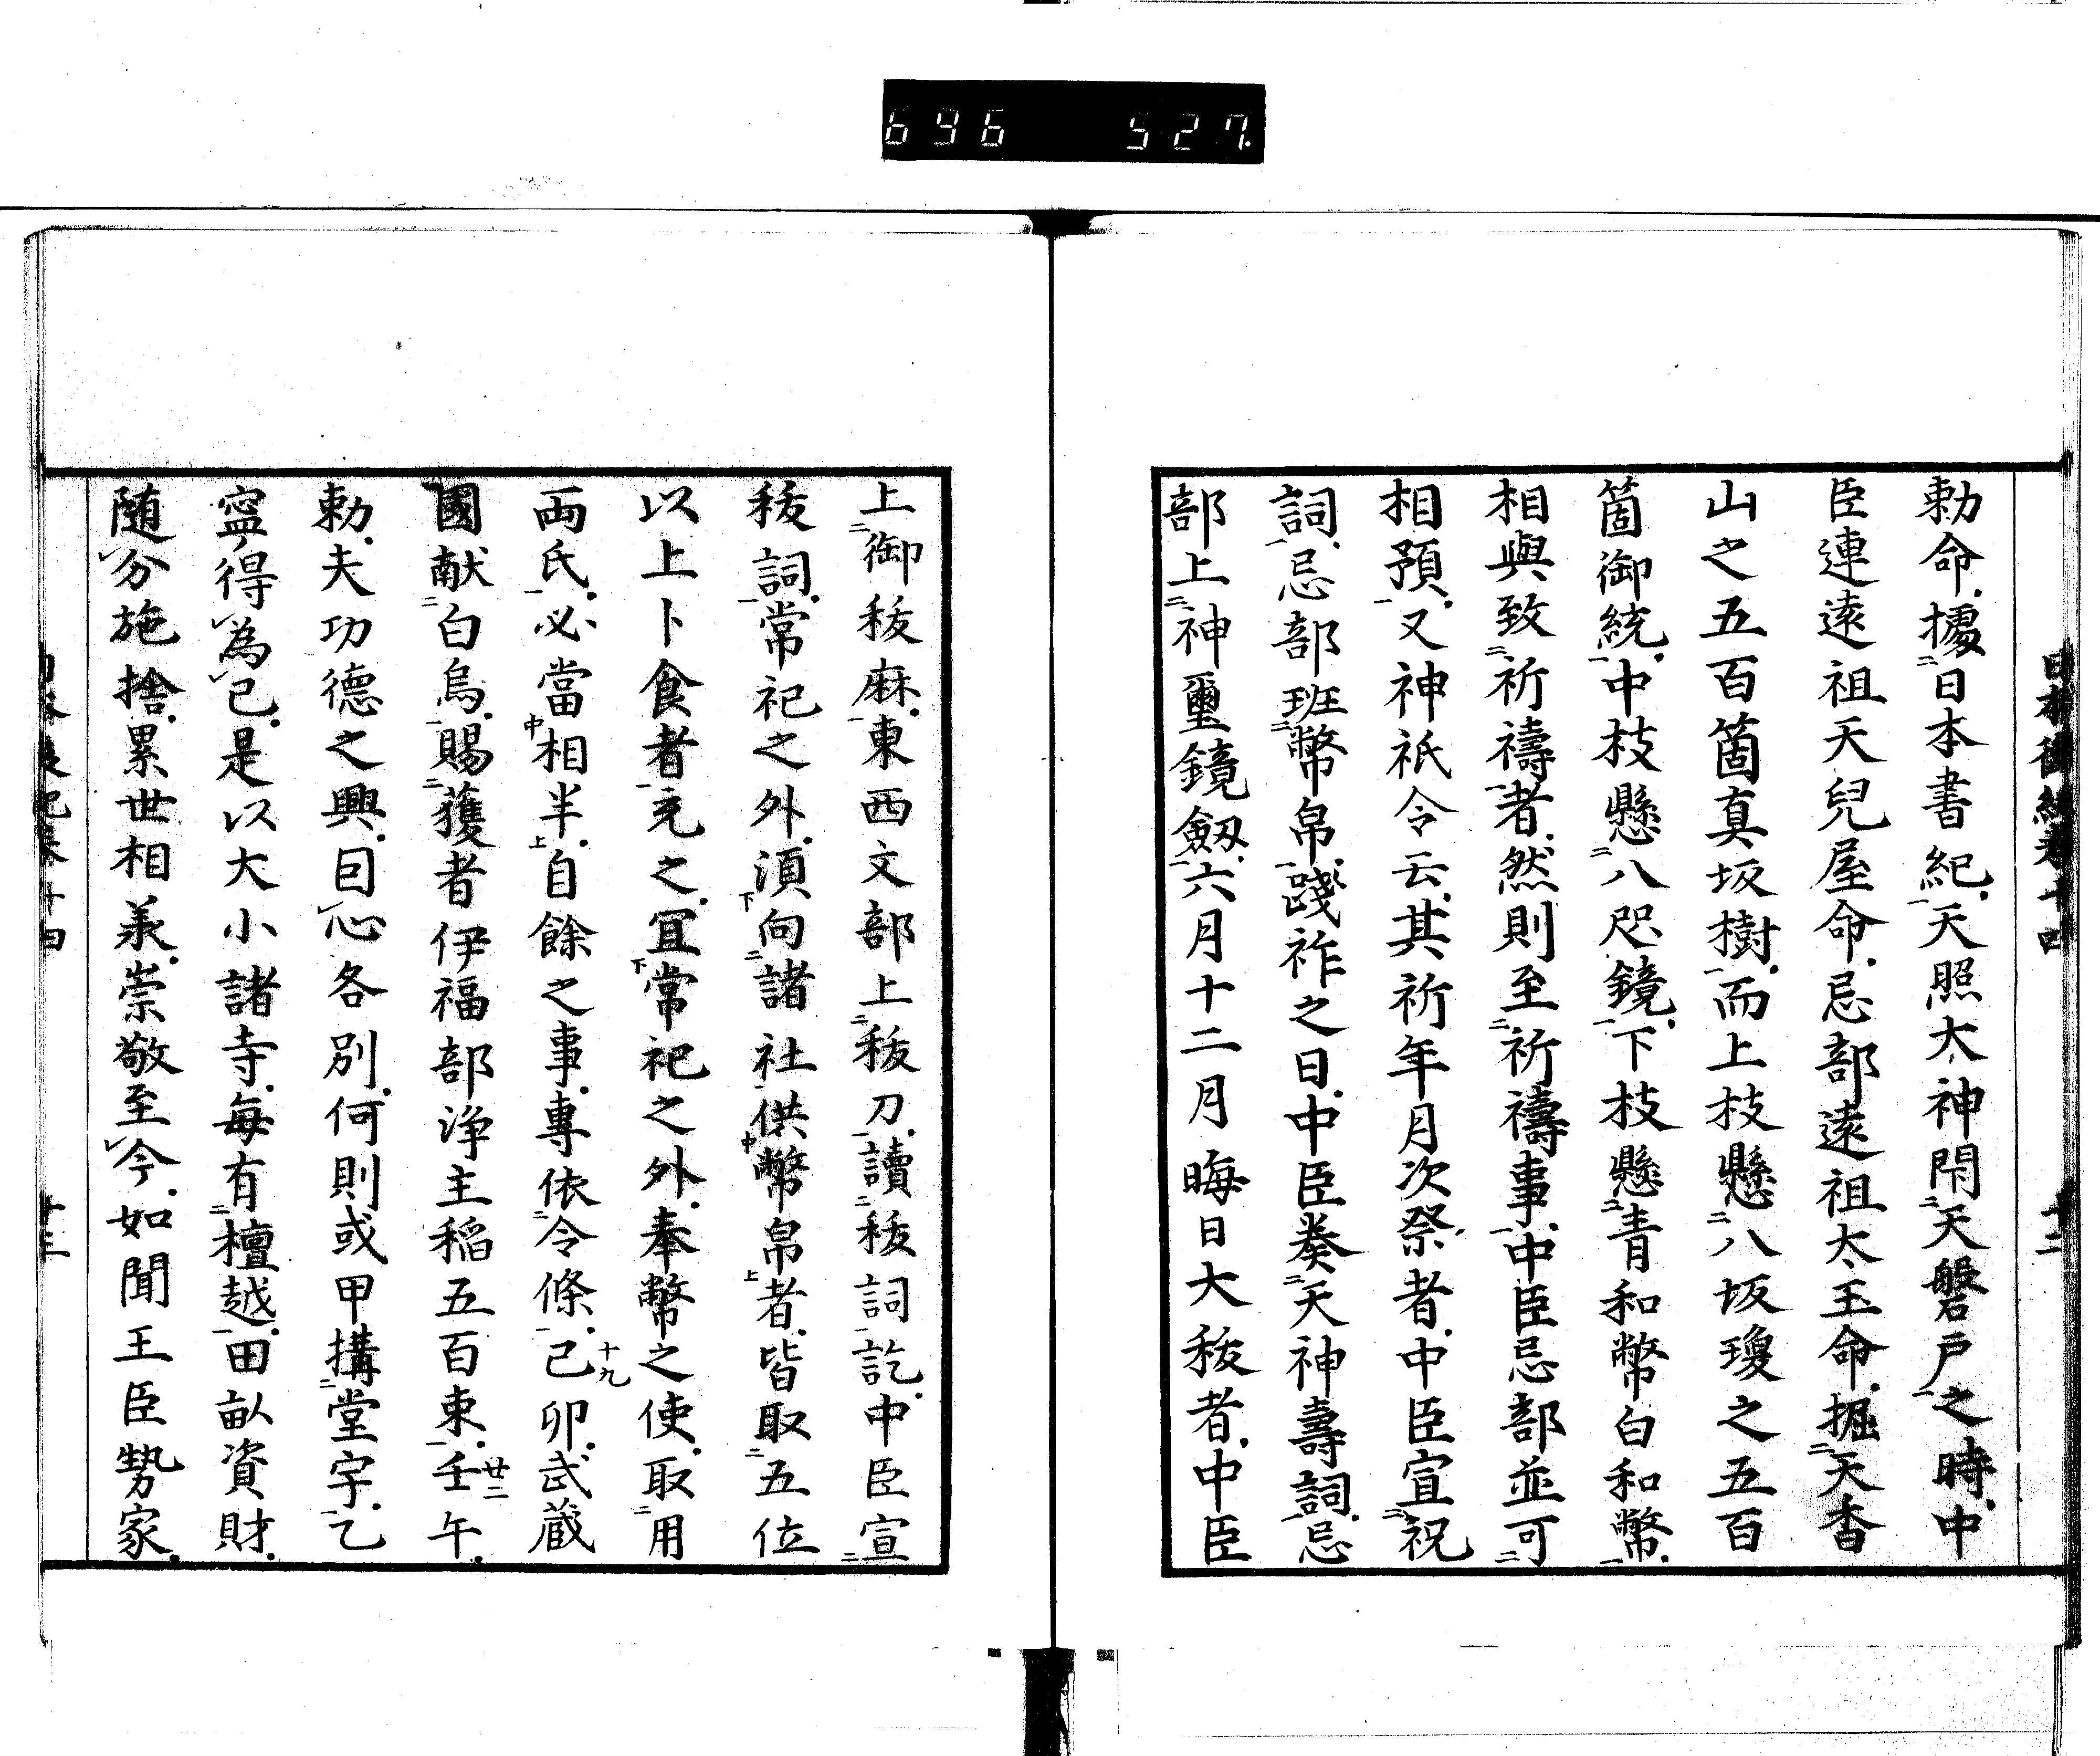 696 527.
日本後紀卷十四 十二
勅命據日本書紀天照大神閇天磐戸之時中
臣連遠祖天兒屋命忌部遠祖太玉命掘天香
山之五百箇真坂樹而上枝懸八坂瓊之五百
箇御統中枝懸八咫鏡下枝懸青和幣白和幣
相與致祈禱者然則至祈禱事中臣忌部並可
相預又神祇令云其祈年月次祭者中臣宣祝
詞忌部班幣帛踐祚之日中臣奏天神壽詞忌
部上神璽鏡劔六月十二月晦日大祓者中臣
上御祓麻東西文部上祓刀讀祓詞訖中臣宣
祓詞常祀之外須向諸社供幣帛者皆取五位
以上卜食者充之冝常祀之外奉幣之使取用
両氏必當相半自餘之事專依令條己卯十九武藏
國献白烏賜獲者伊福部浄主稲五百束壬午廿二
勅夫功德之興因心各別何則或甲搆堂宇乙
寧得為己是以大小諸寺每有檀越田畝資財
随分施捨累世相羕崇敬至今如聞王臣勢家
日本後紀卷十四 十三